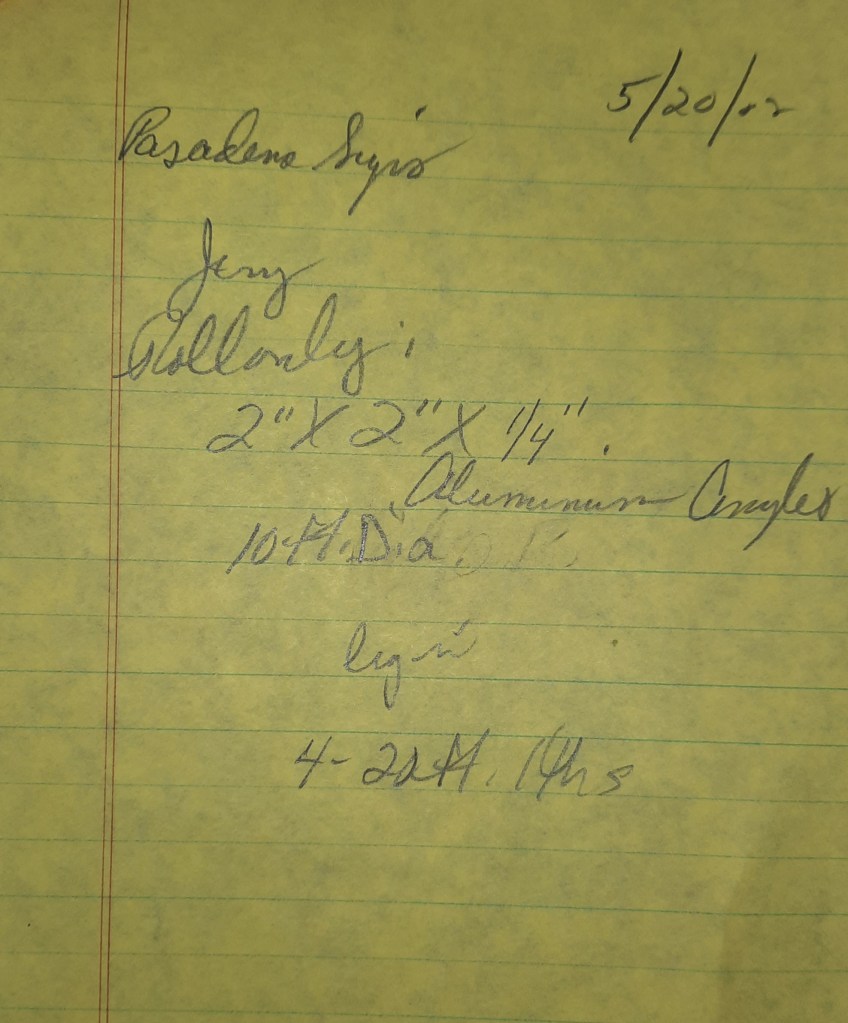 5/20/02
Pasadena Signs
Jerry
Roll only;
2" X 2" X 1/4".
Aluminum Angles
10 ft. Dia.
leg in
4 - 20 ft. lths